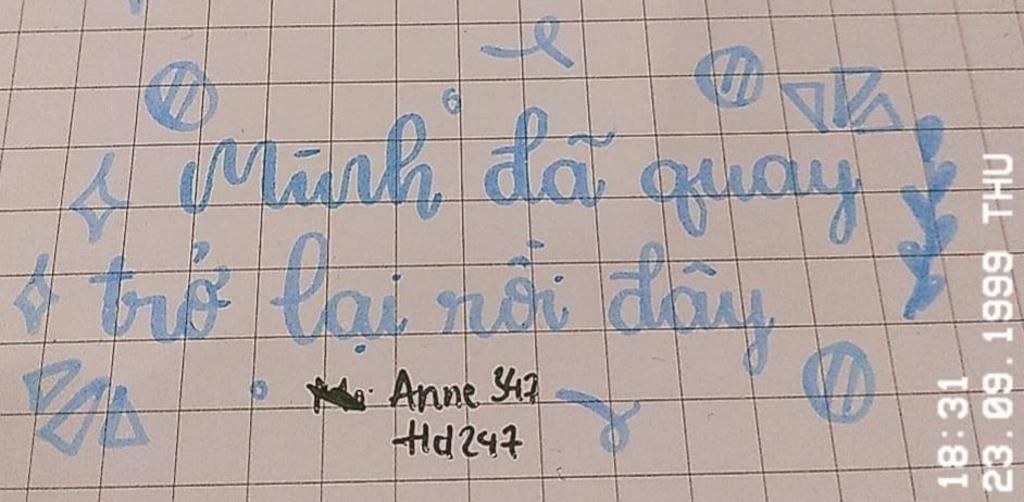 Mình đã quay
trở lại rồi đây
Anne 347
Hd247
18:31
23.09.1999 THU